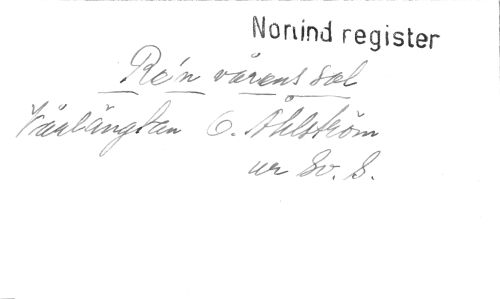 Nonind register
Re'n vårens sol
Vårlängtan O. Åhlström
ur Sv. S.